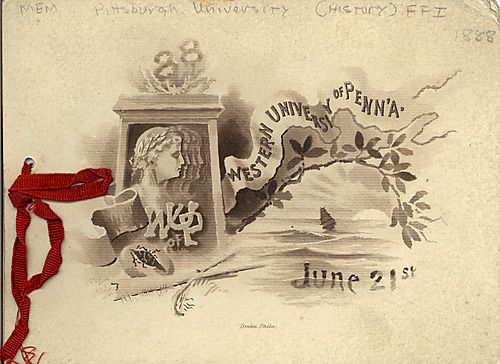 MEM Pittsburgh University (History) FFI
1888
88
WESTERN UNIVERSITY OF PENN'A.
WUP
OF
June 21st
Dreka. Phila.